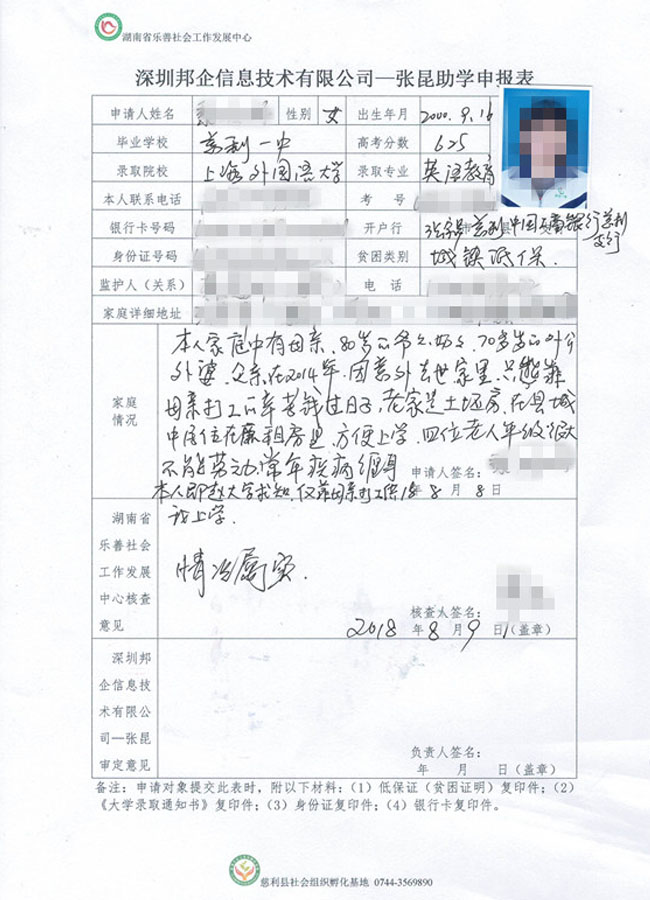 湖南省乐善社会工作发展中心
深圳邦企信息技术有限公司—张昆助学申报表
申请人姓名 性别 女 出生年月 2000.9.16
毕业学校 慈利一中 高考分数 625
录取院校 上海外国语大学 录取专业 英语教育
本人联系电话 考 号
银行卡号码 开户行 张家界市慈利县中国农业银行慈利支行
身份证号码 贫困类别 城镇低保.
监护人（关系） 电 话
家庭详细地址
家庭情况
本人家庭中有母亲，80岁的爷爷奶奶、70岁的外公
外婆，父亲在2014年，因意外去世家里，只能靠
母亲打工的辛苦钱过日子，老家是土坯房，在县城
中居住在廉租房里，方便上学，四位老人年级很大
不能劳动常年疾病缠身
申请人签名：
本人即赴大学求知，仅靠母亲打工供
18年8月8日
我上学.
湖南省乐善社会工作发展中心核查意见
情况属实.
核查人签名：
2018年8月9日（盖章）
深圳邦企信息技术有限公司—张昆审定意见
负责人签名：
年 月 日（盖章）
备注：申请对象提交此表时，附以下材料：（1）低保证（贫困证明）复印件；（2）
《大学录取通知书》复印件；（3）身份证复印件；（4）银行卡复印件。
慈利县社会组织孵化基地 0744-3569890